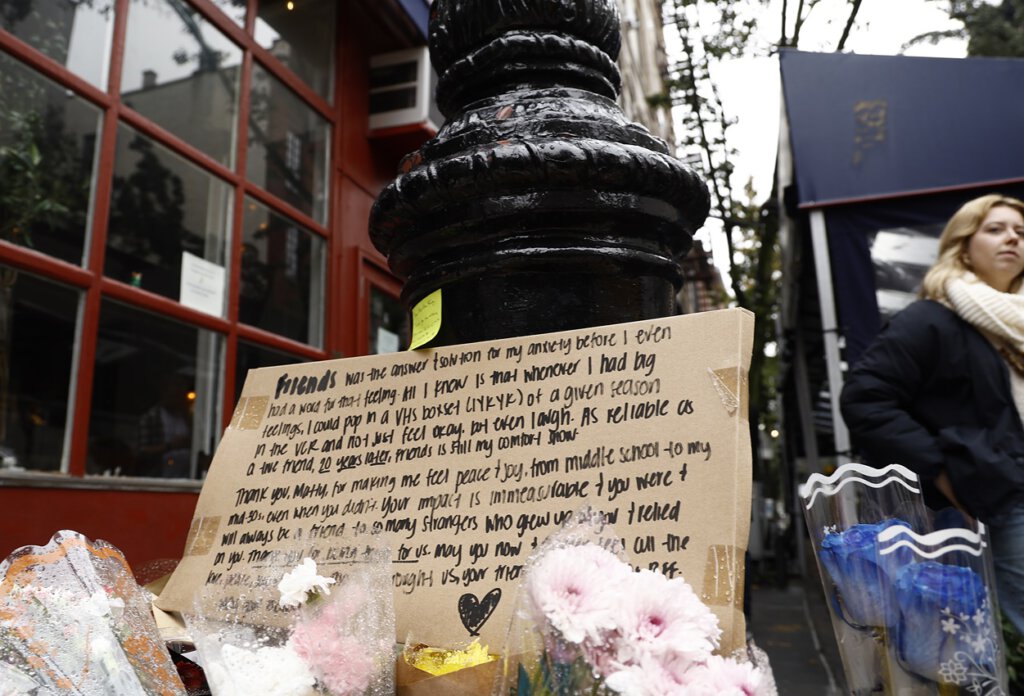 Friends was the answer & solution for my anxiety before I even
had a word for that feeling. All I know is that whenever I had big
feelings, I could pop in a VHS boxset (IYKYK) of a given season
in the VCR and not just feel okay, but even laugh. As reliable as
a true friend, 20 years later, Friends is still my comfort show.
Thank you, Matty, for making me feel peace & joy, from middle school to my
mid-30s, even when you didn't. Your impact is immeasurable & you were &
will always be a friend to so many strangers who grew up & relied
on you. Thank you for being there for us. May you now feel all the
love, peace, us, your